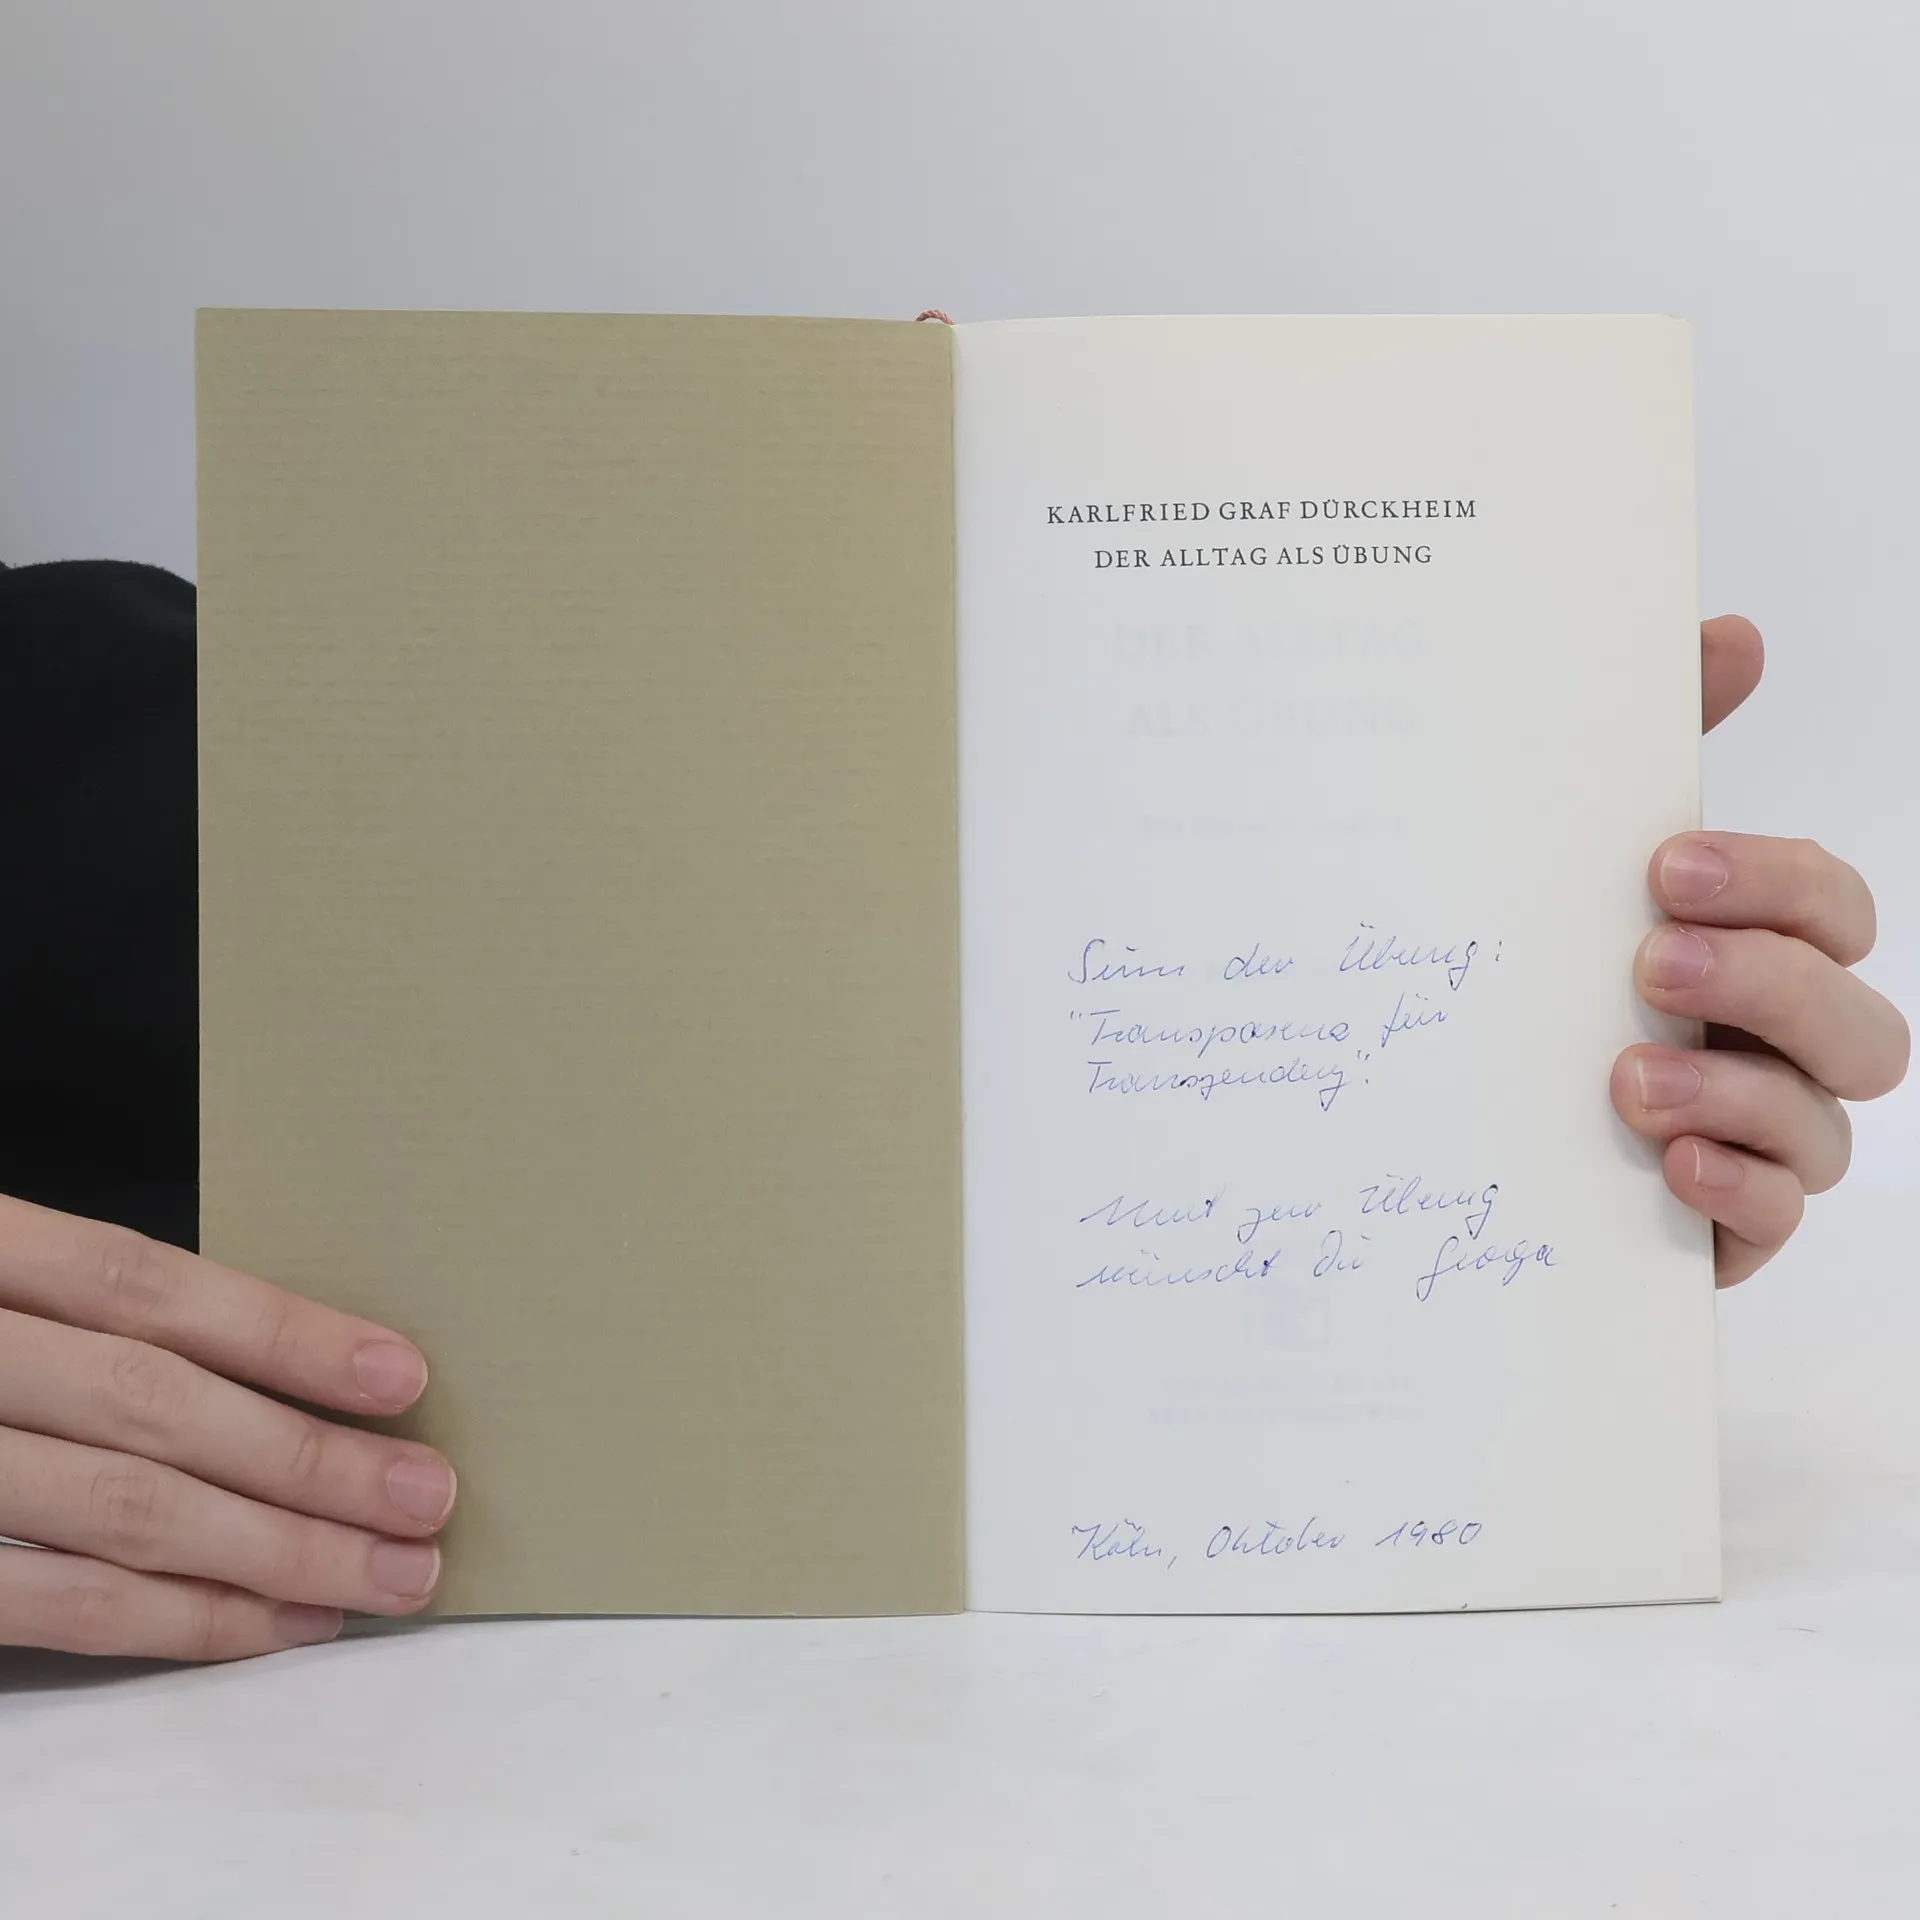 KARLFRIED GRAF DÜRCKHEIM
DER ALLTAG ALS ÜBUNG
DER ALLTAG
ALS ÜBUNG
Sinn der Übung:
"Transparenz für
Transzendenz".
Mut zur Übung
wünscht Dir
Köln, Oktober 1980